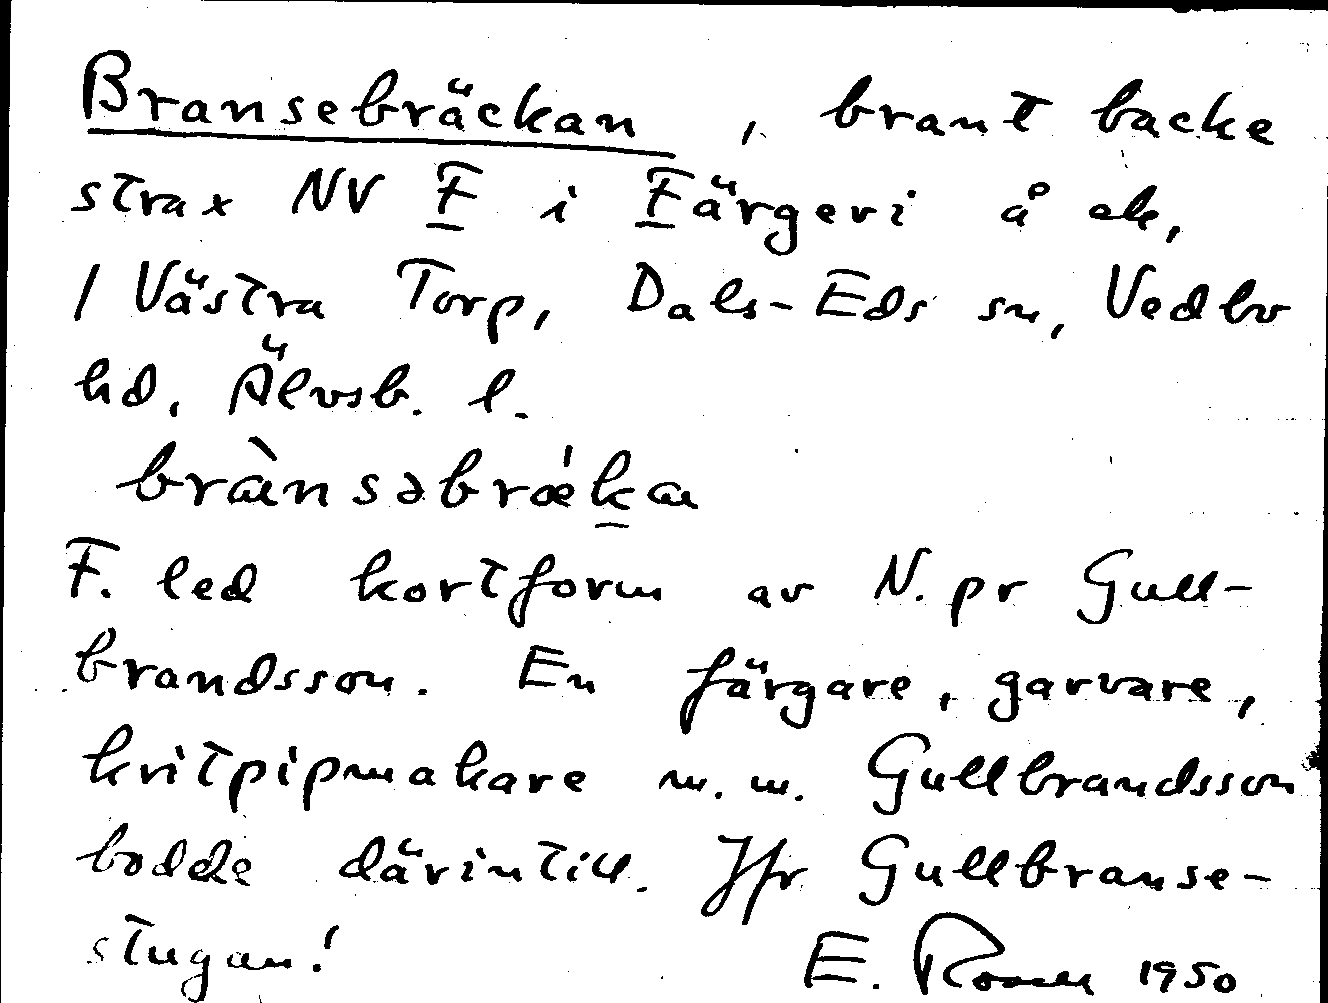 Bransebräckan, brant backe
strax NV F i Färgeri å ek,
/ Västra Torp, Dals-Eds sn, Vedbo
hd, Älvsb. l.
brànsəbræ̀ka
F. led kortform av N. pr Gull-
brandsson. En färgare, garvare,
kritpipmakare m. m. Gullbrandsson
bodde därintill. Jfr Gullbranse-
stugan!
E. 1950